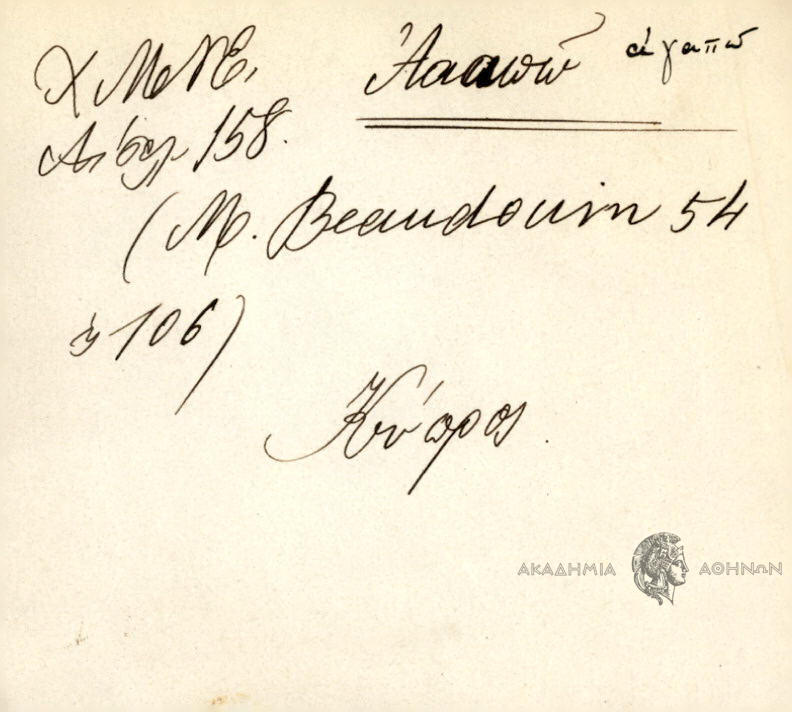 Χ ΜΝΕ, Ἀαπῶ ἀγαπῶ
158.
(M. Beaudouin 54
106)
Κύπρος.
ΑΚΑΔΗΜΙΑ ΑΘΗΝΩΝ